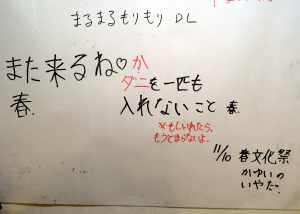 まるまるもりもり DL
また来るね♡
春.
か
ダニを一匹も
入れないこと 春.
※もしいれたら、
もうとまらないよ.
11/10 春文化祭
かゆいの
いやだ.